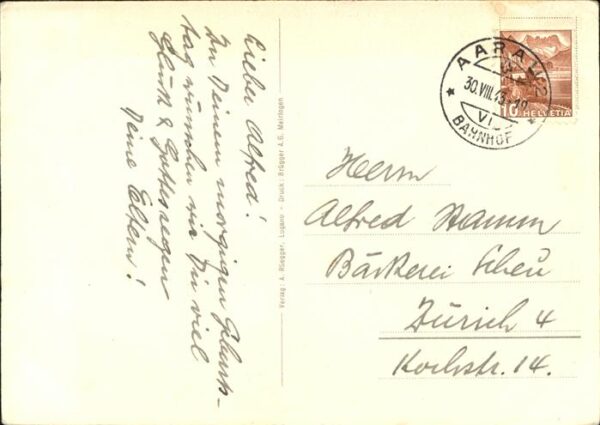 Lieber Alfred!
Zu Deinem morgigen Geburts-
tag wünschen wir Dir viel
Glück & Gottessegen
Deine Eltern!
Verlag: A. Rüegger, Lugano - Druck: Brügger A.G. Meiringen
AARAU 2
30.VIII.43-12
VI
BAHNHOF
10 HELVETIA
Herrn
Alfred Stamm
Bäckerei Scheu
Zürich 4
Kochstr. 14.